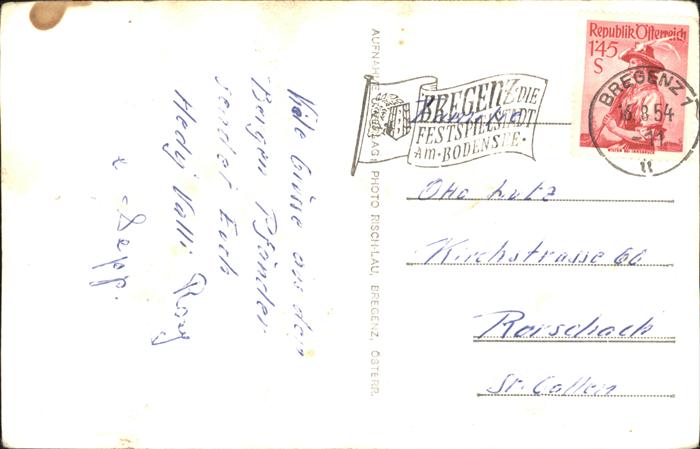 Viele Grüsse aus dem
Bergen Pfänder
sendet Euch
Hedy Valli Rosy
+ Sepp.
AUFNAHME U. VERLAG: PHOTO RISCH-LAU, BREGENZ, ÖSTERR.
BREGENZ DIE
FESTSPIELSTADT
AM·BODENSEE·
Republik Österreich
145
S
WILTEN BEI INNSBRUCK
BREGENZ 1
16.8.54
-11
tt
Otto Lutz
Kirchstrasse 60
Rorschach
St. Gallen